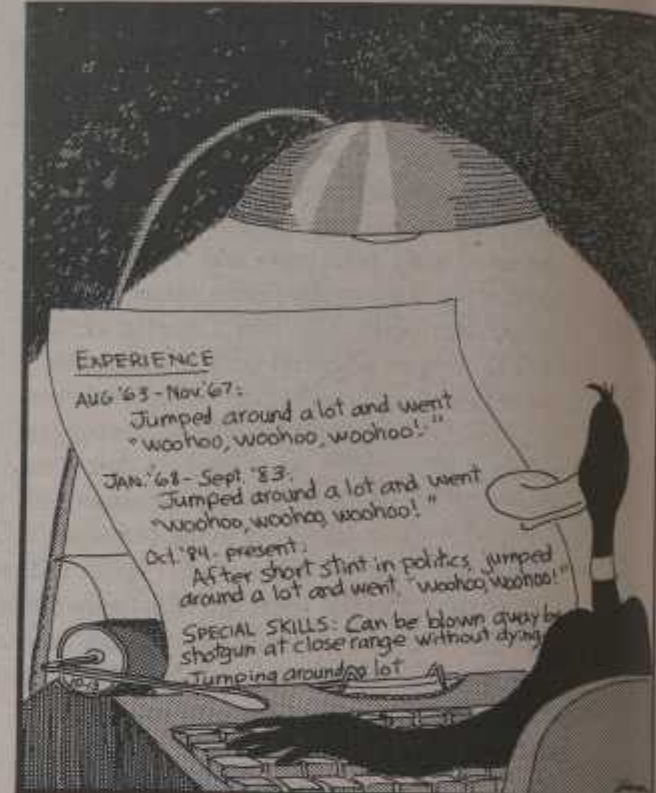 EXPERIENCE
AUG '63 - Nov '67:
Jumped around a lot and went
"woohoo, woohoo, woohoo!"
JAN. '68 - Sept. '83:
Jumped around a lot and went
"woohoo, woohoo, woohoo!"
Oct. '84 - present:
After short stint in politics, jumped
around a lot and went, "woohoo, woohoo!"
SPECIAL SKILLS: Can be blown away by
shotgun at close range without dying.
Jumping around a lot